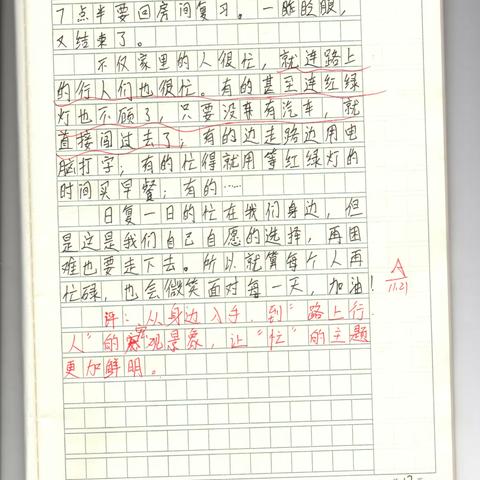 7点半要回房间复习。一眨眨眼,
又结束了。
不仅家里的人很忙,就连路上
的行人们也很忙。有的甚至连红绿
灯也不顾了,只要没有汽车,就
直接闯过去了;有的边走路边用电
脑打字;有的忙得就用等红绿灯的
时间买早餐;有的……
日复一日的忙在我们身边,但
是这是我们自己自愿的选择,再困
难也要走下去。所以就算每个人再
忙碌,也会微笑面对每一天,加油!
A
11.21
评:从身边入手,到“路上行
人”的观景象,让“忙”的主题
更加鲜明。